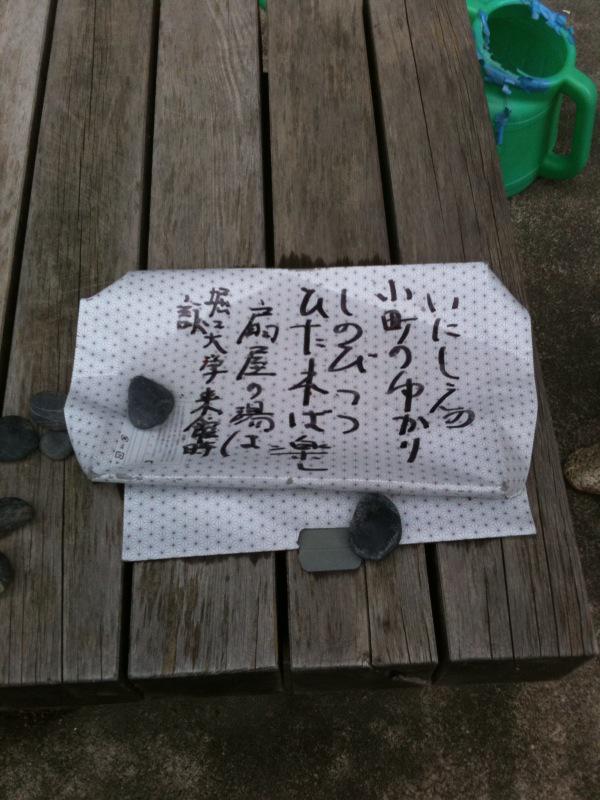 いにしえの
小町のゆかり
しのびつつ
ひた木ば楽し
扇屋の湯は
堀口大学来館時
歌